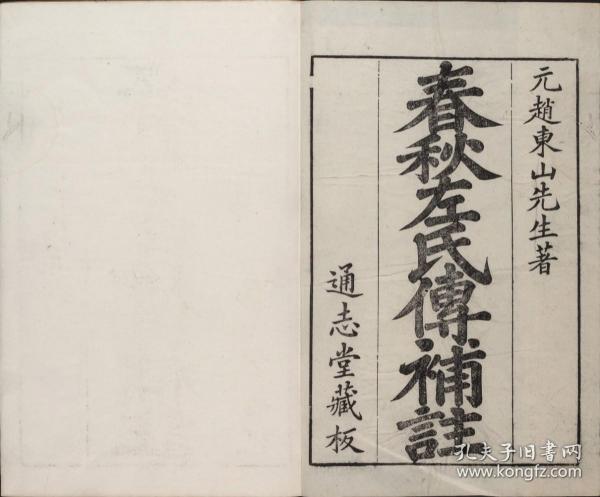 元趙東山先生著
春秋左氏傳補註
通志堂藏板
孔夫子旧书网
www.kongfz.com